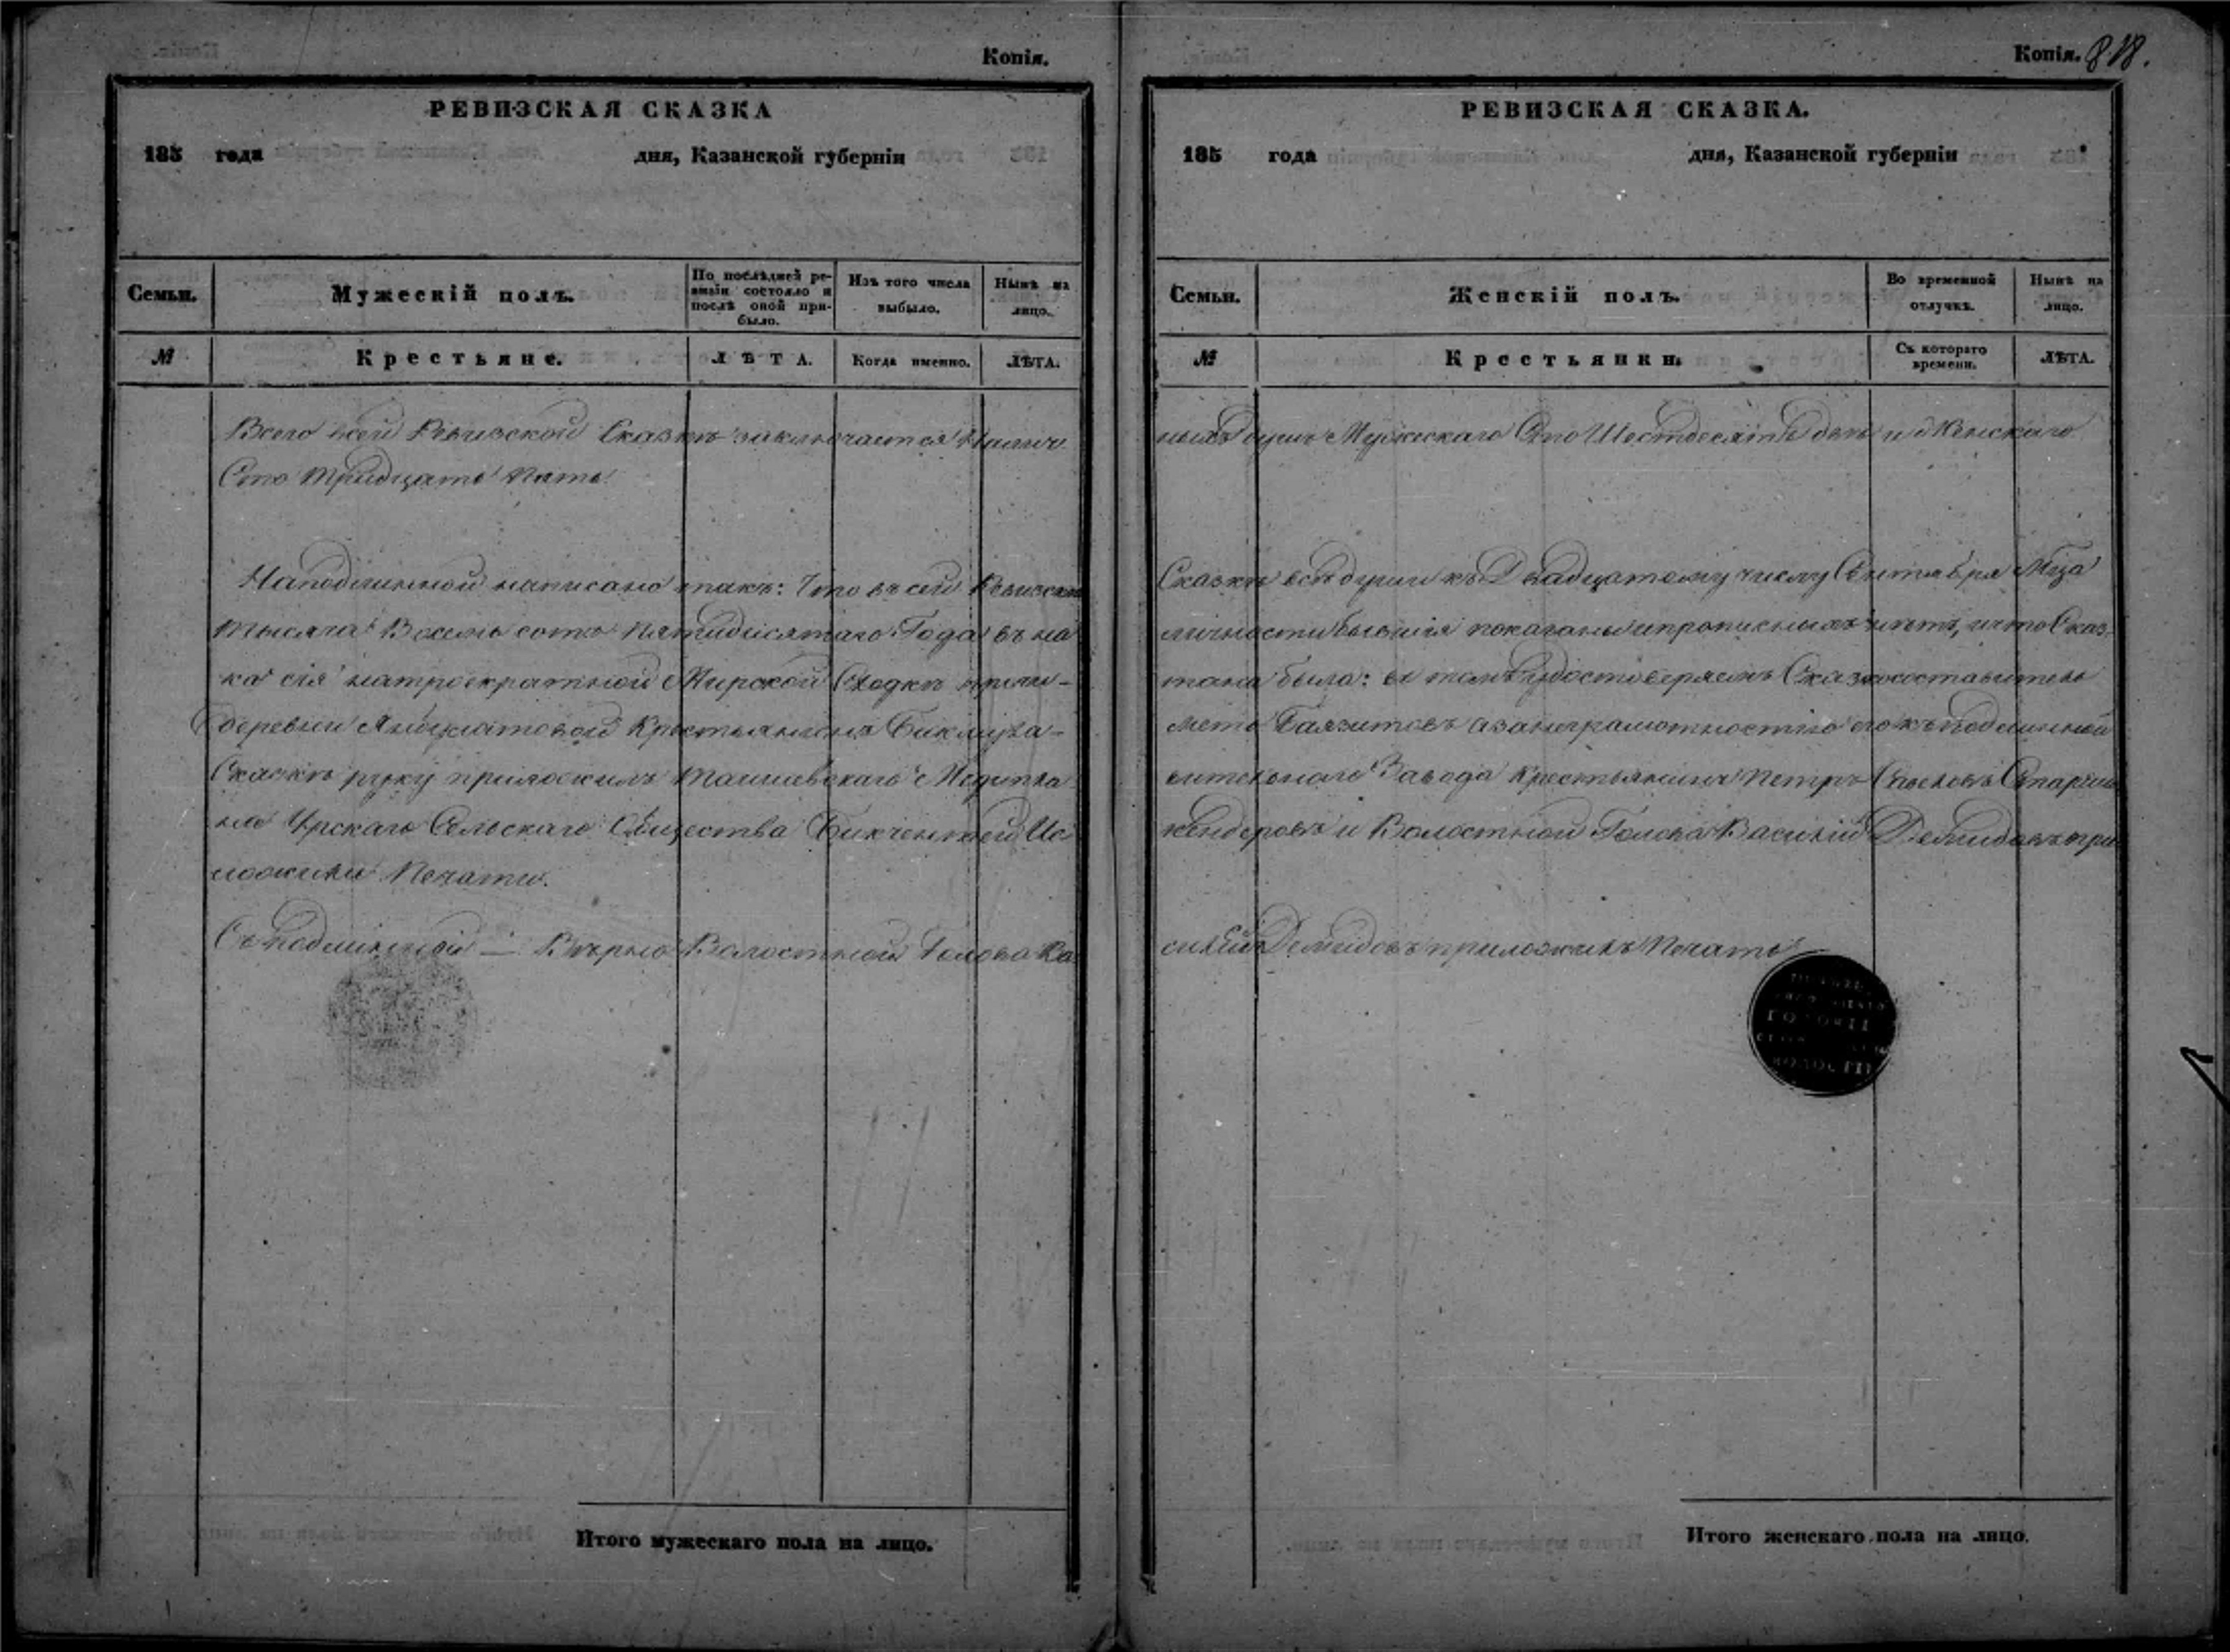 Копія.
РЕВИЗСКАЯ СКАЗКА
185 года дня, Казанской губерніи
Семьи. Мужескій полъ. По послѣдней ревизіи состояло и послѣ оной прибыло. Изъ того числа выбыло. Нынѣ на лицо.
№ Крестьяне. ЛѢТА. Когда именно. ЛѢТА.
Всего всей Ревизской Сказкѣ заключается Налич
Сто тридцать пять
Наподлинной написано такъ: Что въ сей Ревизской
тысяча Восемь сотъ пятидесятаго Года въ на
ка сія натроекратной Мирской Сходкѣ прочи-
деревни крестьянина
Сказкѣ руку приложилъ Ташевскаго
на Урскаго Сельскаго Общества Бикчентей Ис
ложили Печати.
Съ подлинной — Вѣрно Волостной Голова Ва
Итого мужескаго пола на лицо.
Копія. 818.
РЕВИЗСКАЯ СКАЗКА.
185 года дня, Казанской губерніи
Семьи. Женскій полъ. Во временной отлучкѣ. Нынѣ на лицо.
№ Крестьянки. Съ котораго времени. ЛѢТА.
ныхъ душъ Мужескаго Сто Шестдесятъ двѣ и Женскаго
Сказкѣ всѣ души къ Двадцатому числу Сентября Мца
личности бывшія показаны ипрописныхъ нѣтъ, ичто Сказ
тана была: въ томъ удостоверяемъ Сказкосоставитель
метъ Баязитовъ азанеграмотностію его къ подлинной
вительнаго Завода крестьянинъ Петръ Старши
кендеровъ и Волостной Голова Василій Демидовъ при
силій Демидовъ приложилъ Печать
ГОЛОВЫ
ВОЛОСТИ
Итого женскаго пола на лицо.